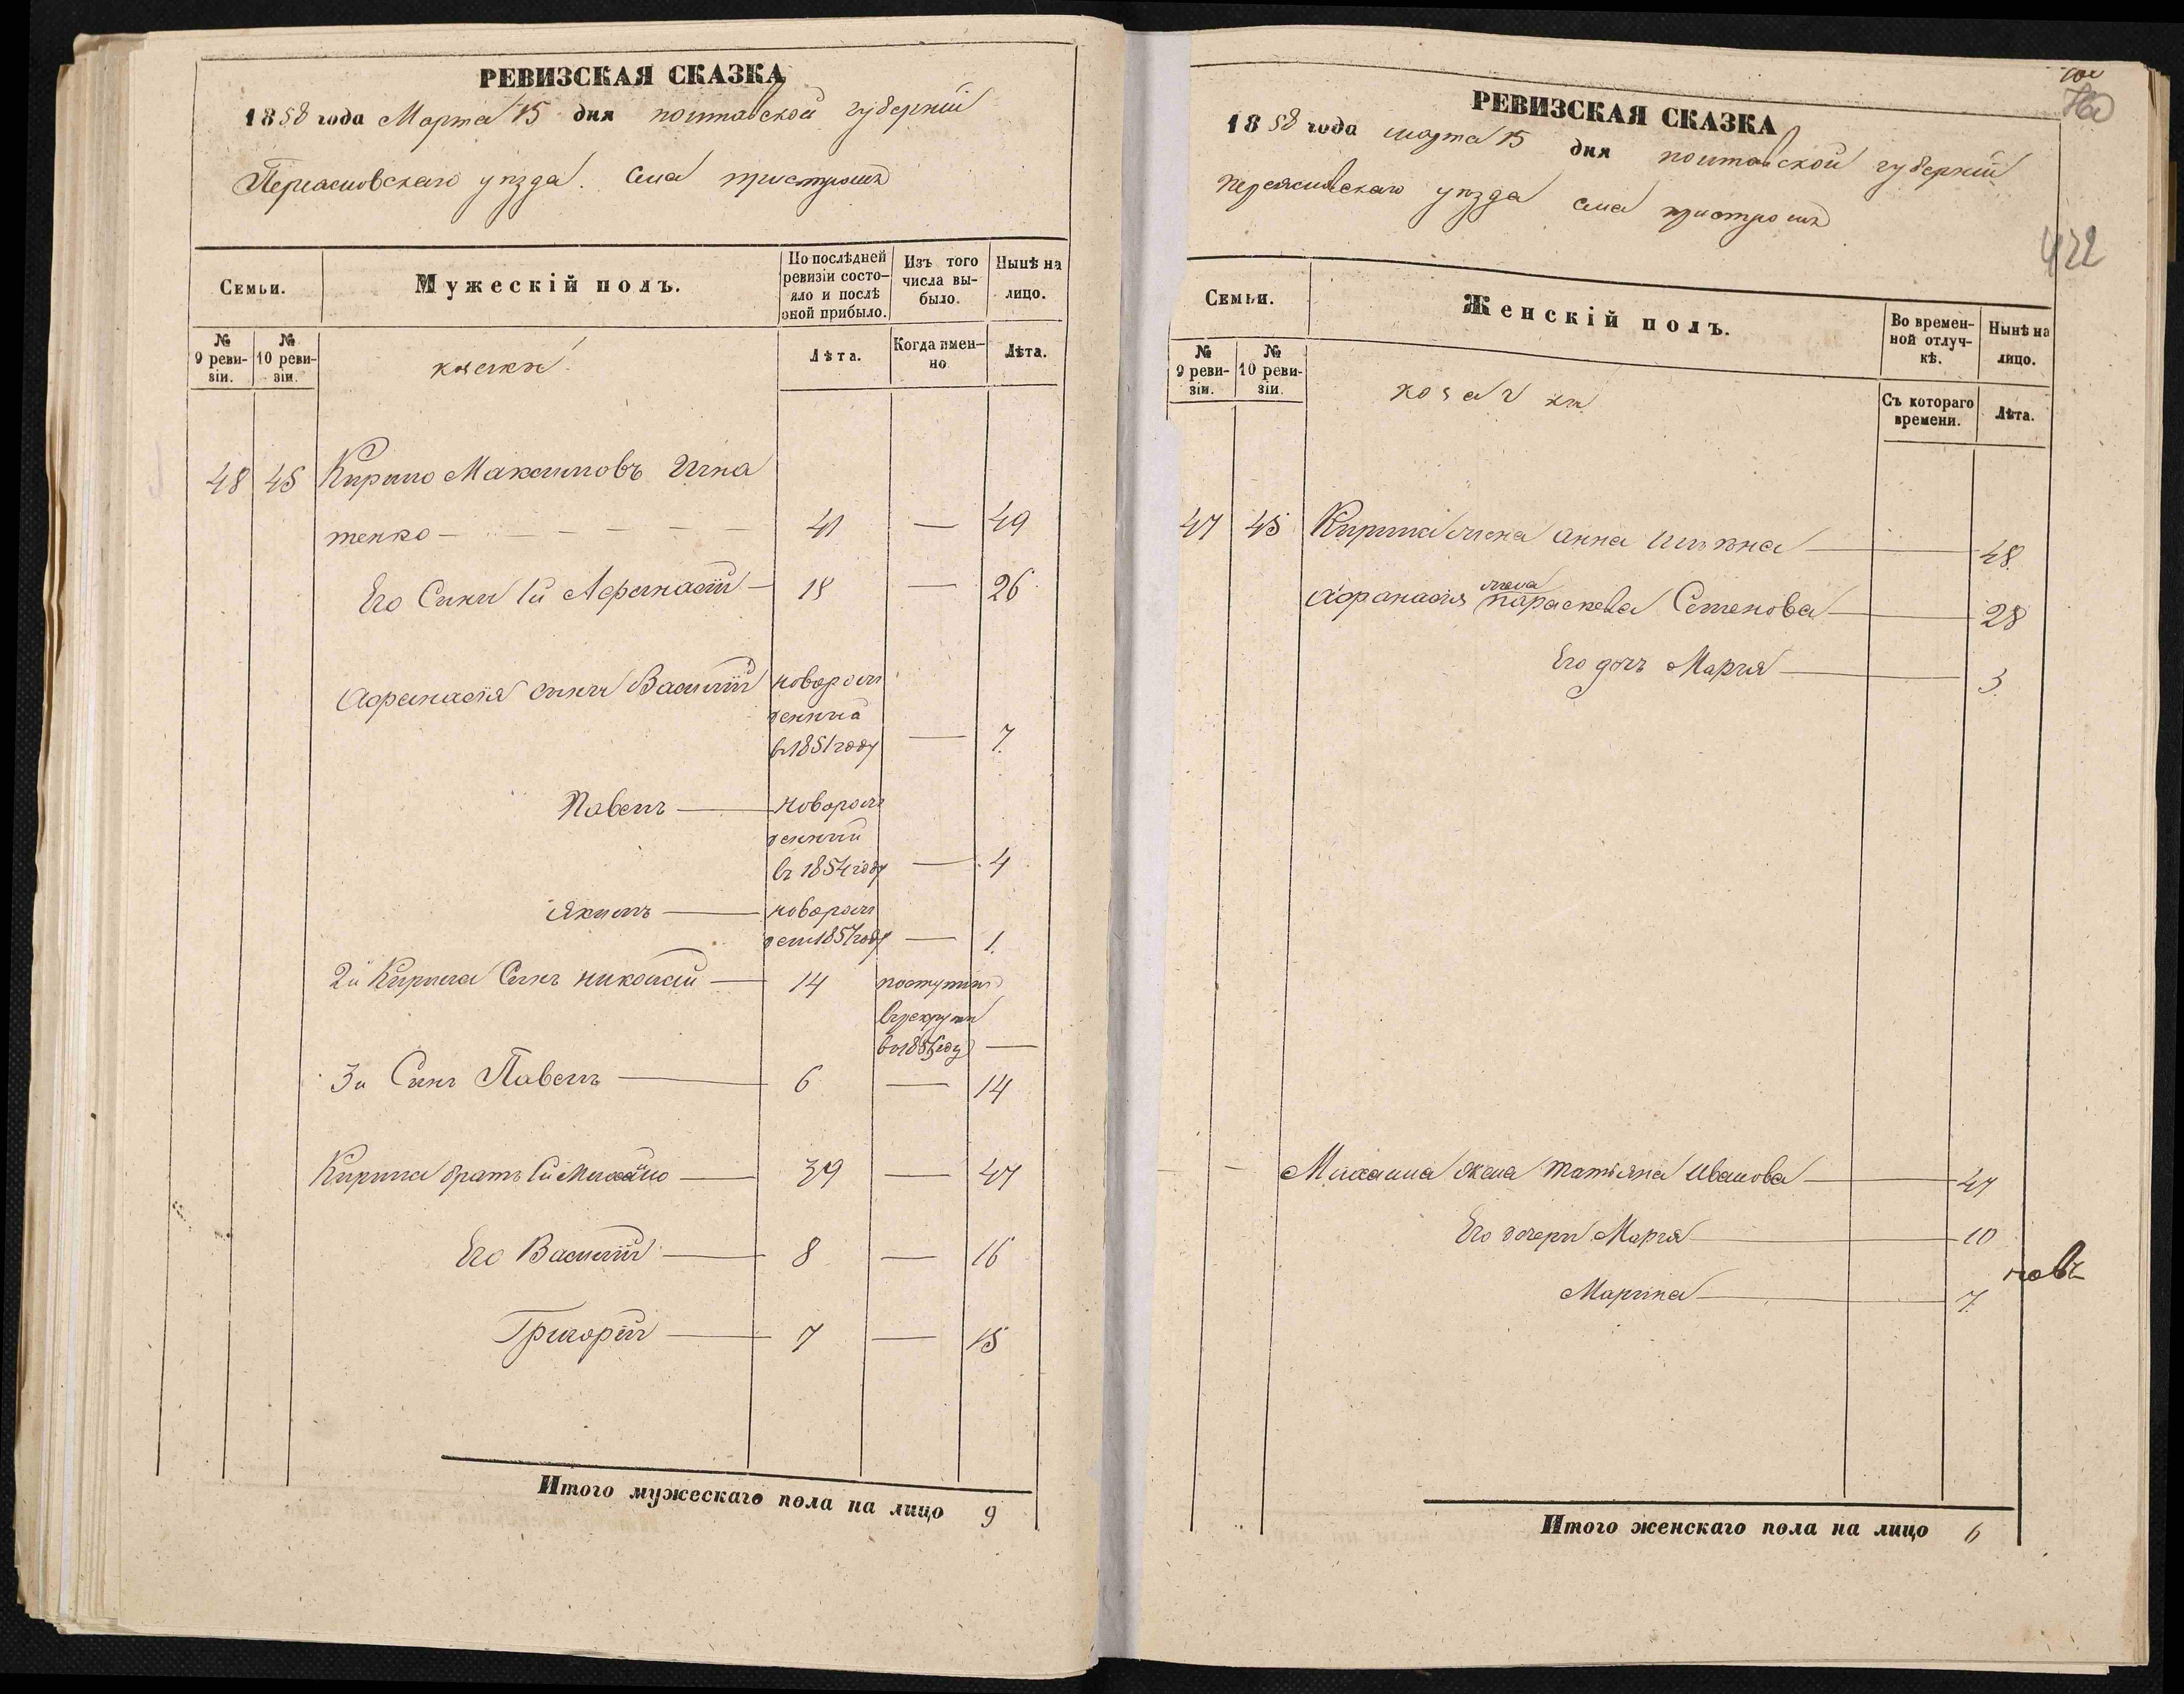 РЕВИЗСКАЯ СКАЗКА
1858 года Марта 15 дня полтавской губерніи
Переясловскаго уезда. Села пристромъ
Семьи.
Мужескій полъ.
По послѣдней ревизіи состояло и послѣ оной прибыло.
Изъ того числа выбыло.
Нынѣ на лицо.
№ 9 ревизіи.
№ 10 ревизіи.
козаки
Лѣта.
Когда именно
Лѣта.
48 45 Кирило Максимовъ Игна
тенко 41 — 49
Его Сыны 1й Афанасій 18 — 26
Афанасія сыны Василій новорож
денный
въ 1851 году — 7.
Павелъ новорож
денный
въ 1854 году — 4
Якимъ новорож
ден 1857 году — 1.
2й Кирила Сынъ николай 14 поступилъ
врекруты
во 1855 году —
3й Сынъ Павелъ 6 — 14
Кирила братъ 1й Михайло 39 — 47
Его Василій 8 — 16
Григорій 7 — 15
Итого мужескаго пола на лицо 9
422
РЕВИЗСКАЯ СКАЗКА
1858 года марта 15 дня полтавской губерніи
переясловскаго уезда села пристромъ
Семьи.
Женскій полъ.
Во временной отлучкѣ.
Нынѣ на лицо.
№ 9 ревизіи.
№ 10 ревизіи.
козачки
Съ котораго времени.
Лѣта.
47 45 Кирила жена анна 48.
жена
Афанасія параскева Семенова 28
Его дочь Марья 3.
Михаила жена татьяна Иванова 47
Его дочери Марья 10
Марина 7.
Итого женскаго пола на лицо 6